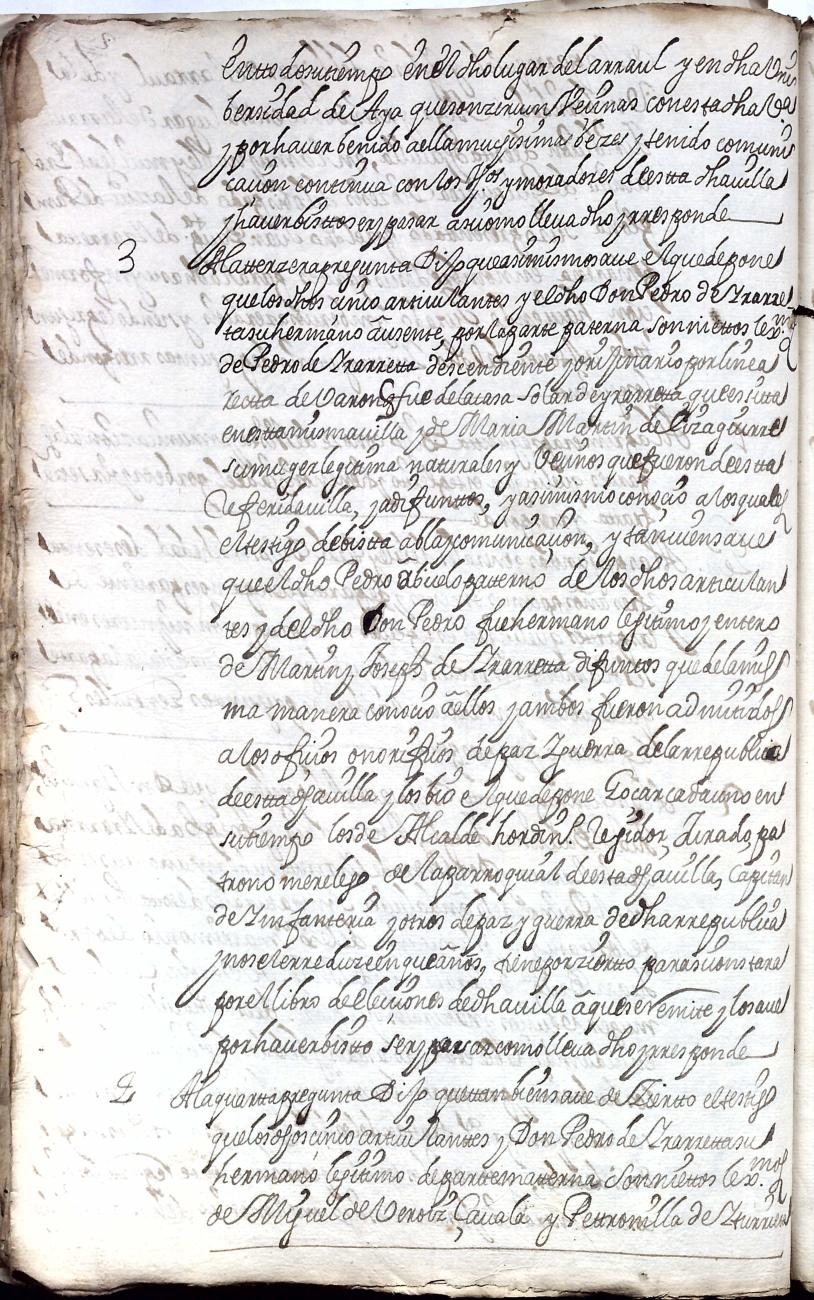 en todo su tiempo en el dho lugar de larraul y en dha Uni
bersidad de Aya que son zircun Vecinas con esta dha Va
y por haver benido a ella muchisimas bezes y tenido comuni
cacion continua con los Vos y moradores de esta dha villa
y haver bisto ser y pasar asi como lleva dho y rresponde
3 A la terzera pregunta Dijo que asimismo save el que depone
que los dhos cinco articulantes y el dho Don Pedro de Yrarre
ta su hermano ausente, por la parte paterna son nietos lexmos
de Pedro de Yrarreta descendiente y orijinario por linea
recta de Varon q fue de la casa solar de yrarreta que es sita
en esta misma villa y de Maria Martin de Eizaguirre
su muger legitima naturales y Vecinos que fueron de esta
referida villa, ya difuntos, y asimismo conocio a los quales
el testigo de bista abla y comunicacion, y tanvien save
que el dho Pedro abuelo paterno de los dhos articulan
tes y del dho Don Pedro fue hermano lejitimo y entero
de Martin y Joseph de Yrarreta difuntos que de la mis
ma manera conocio a ellos y ambos fueron admitidos
a los oficios onorificos de paz y guerra de la rrepublica
de esta dha villa y los bio el que depone Gocar cada uno en
su tiempo los de Alcalde hordino. Rejidor, Jurado, pa
trono merelego de la parroquial de esta dha villa, Capitan
de Ynfanteria y otros de paz y guerra de dha rrepublica
y no se le rreduze en que años, tiene por zierto para su constara
por el libro de Elecciones de dha villa a que se remite y lo save
por haver bisto ser y pasar como lleva dho y rresponde
4 A la quarta pregunta Dijo que tanbien save de Zierto el testigo
que los dhos cinco articulantes y Don Pedro de Yrarreta su
hermano lejitimo de parte materna son nietos lexmos
de Miguel de Verobi Çavala y Petronilla de Yturrieta